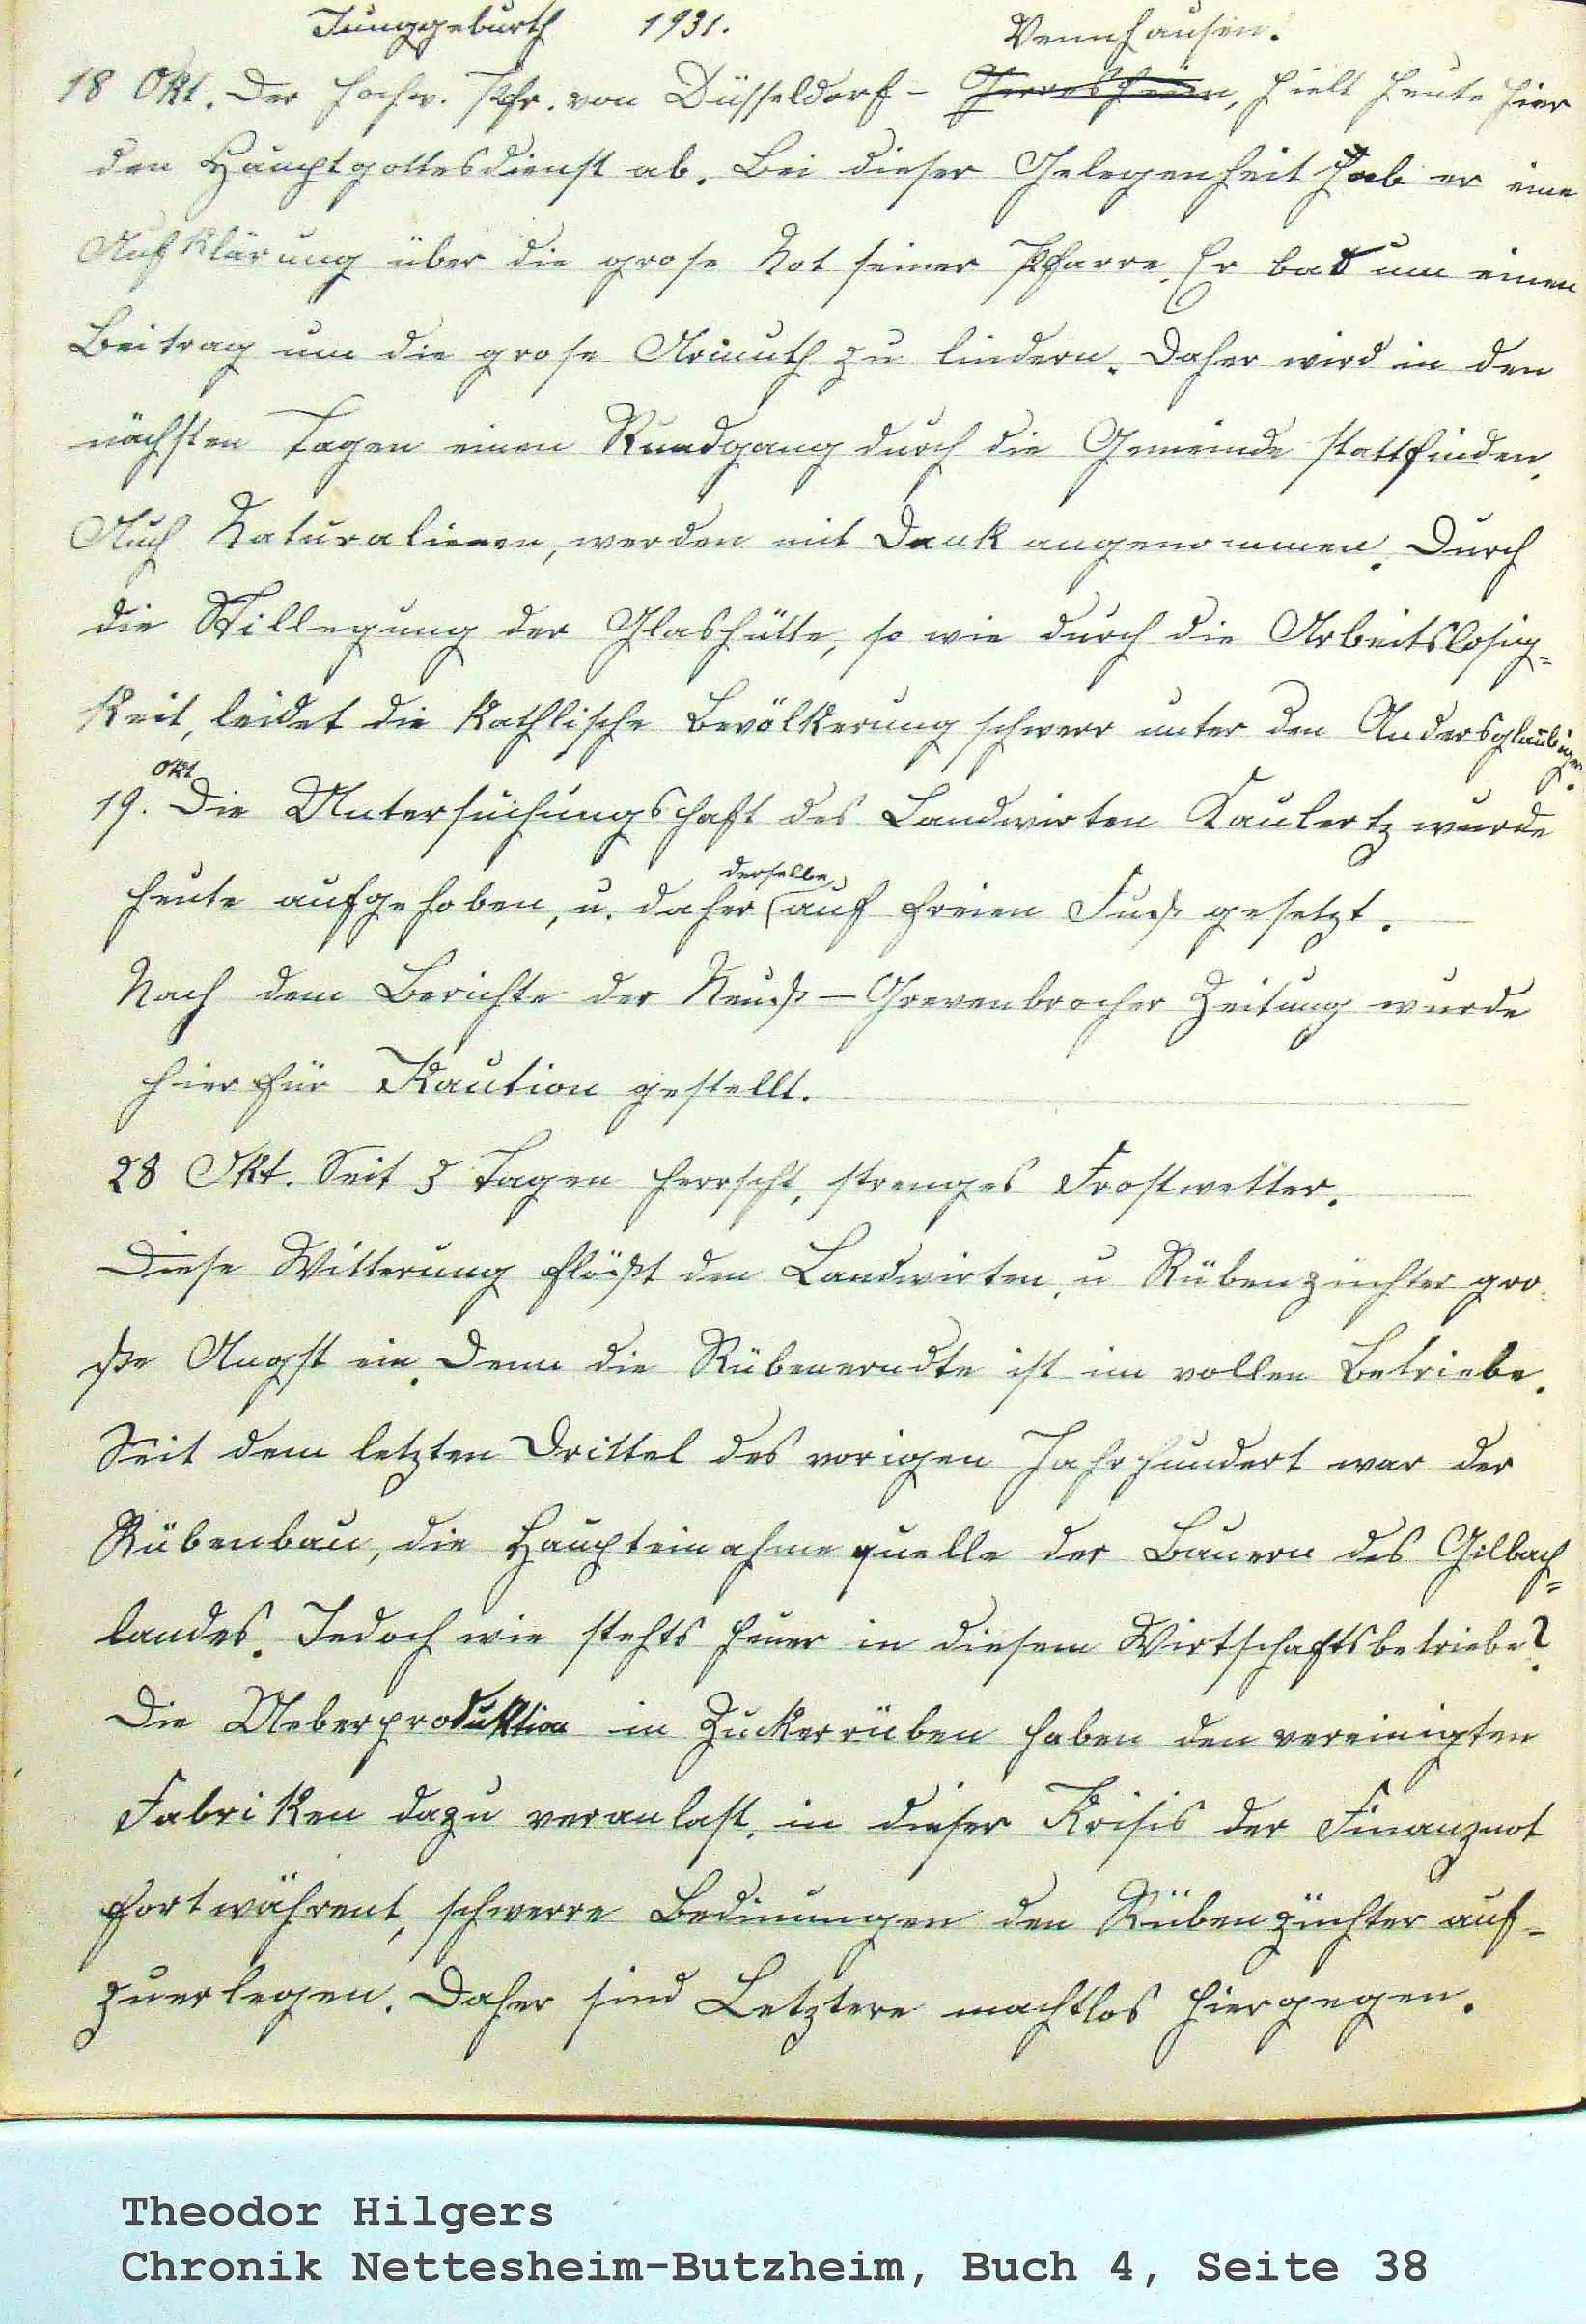 Junggeburth 1931. Vennhausen.
18 Okt. Der hochw. Pfr. von Düsseldorf - Gerresheim, hielt heute hier
den Hauptgottesdienst ab. Bei dieser Gelegenheit gab er eine
Aufklärung über die grose Not seiner Pfarre. Er bat um einen
Beitrag um die grose Armuth zu lindern. Daher wird in den
nächsten Tagen einen Rundgang durch die Gemeinde stattfinden.
Auch Naturalienen, werden mit Dank angenommen. Durch
die Stillegung der Glashütte, so wie durch die Arbeitslosig=
keit, leidet die kathlische Bevölkerung schwer unter den Andersglaubigen.
19. Okt Die Untersuchungshaft des Landwirten Kaulertz wurde
heute aufgehoben, u. daher derselbe, auf freien Fuß gesetzt.
Nach dem Berichte der Neuß - Grevenbrocher Zeitung wurde
hierfür Kaution gestellt.
28 Okt. Seit 3 Tagen herrscht, strenges Frostwetter.
Diese Witterung flößt den Landwirten, u Rübenzüchter gro-
ße Angst ein. Denn die Rübenerndte ist im vollen Betriebe.
Seit dem letzten Drittel des vorigen Jahrhundert war der
Rübenbau, die Haupteinahmequelle der Bauern des Gilbach=
landes. Jedoch wie stehts heuer in diesem Wirtschaftsbetriebe?
Die Ueberproduktion in Zuckerrüben haben den vereinigten
Fabriken dazu veranlast, in dieser Krisis der Finanznot
fortwährent, schwerre Bedinungen den Rübenzüchter auf-
zuerlegen. Daher sind Letztere machtlos hiergegen.
Theodor Hilgers
Chronik Nettesheim-Butzheim, Buch 4, Seite 38